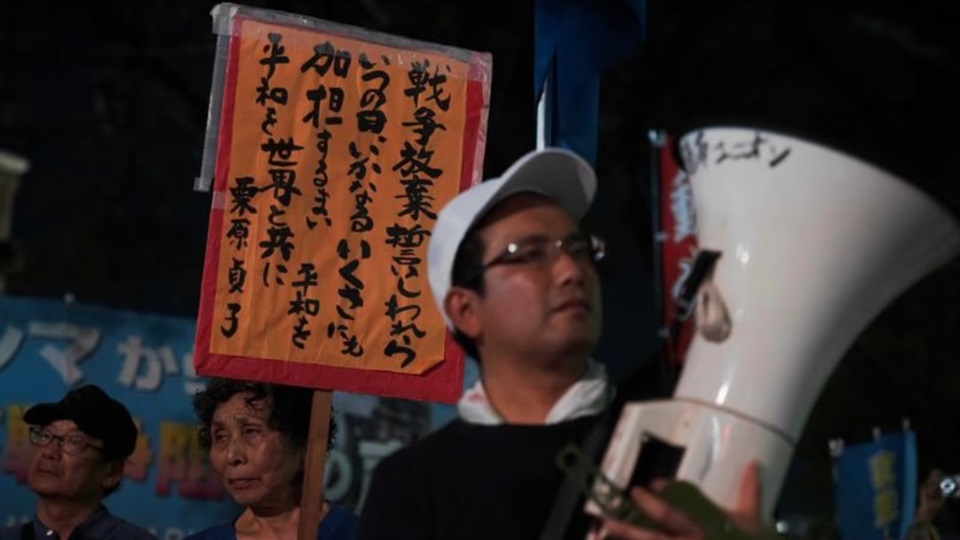 戦争放棄誓いしわれら
いつの日、いかなるいくさにも
加担するまい 平和を
平和を世界と共に
栗原貞子
ユニオン
マから